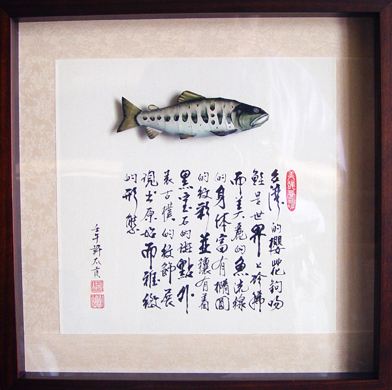 台灣的櫻花鉤吻
鮭是世界上珍稀
而美麗的魚流線
的身体富有橢圓
的紋彩並鑲有着
黑宝石的斑點外
表古樸的紋飾展
現出原始而雅緻
的形態
壬午